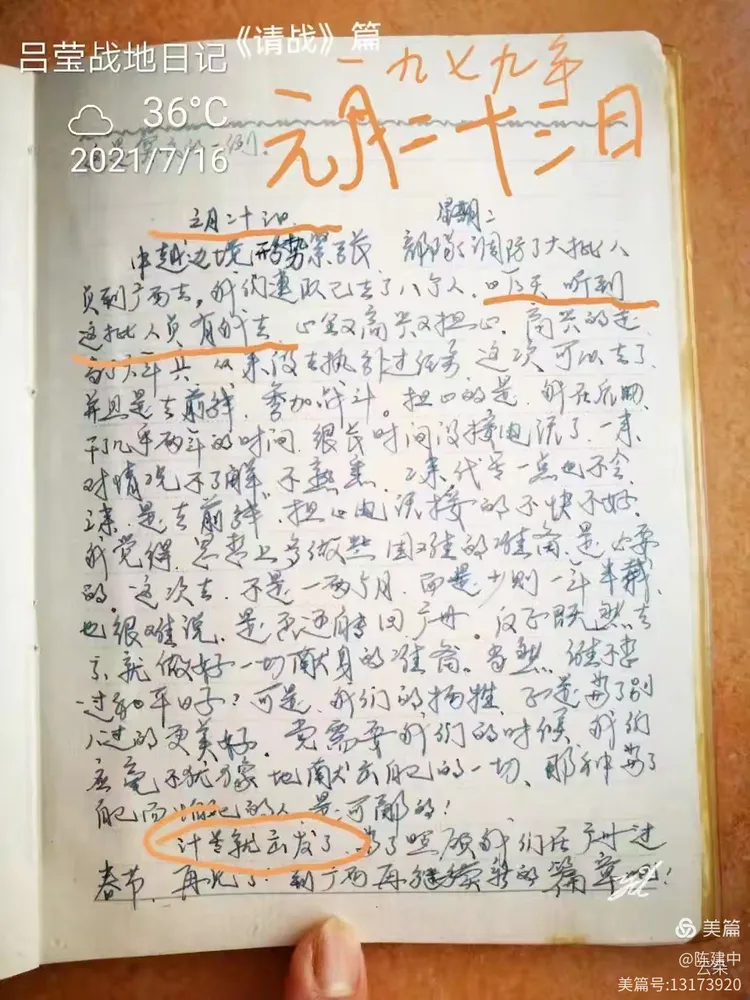 吕莹战地日记《请战》篇
36°C
2021/7/16
一九七九年
元月二十三日
例。
元月二十三日 星期二
中越边境形势紧张 部队调防了大批人
员到广西去，我们连队已去了八个人，昨天听到
这批人员有我去，心里又高兴又担心，高兴的是
当了兵 从来没去执行过任务 这次可以去了
并且是去前线，参加战斗。担心的是，我在后
干了几乎两年的时间 很长时间没接电话了，一来
对情况不了解，不熟悉 二来代号一点也不会
三来是去前线，担心电话接的不快不好。
我觉得，思想上多做些困难的准备，是必要
的。这次去，不是一两个月，而是少则一年半载
也很难说，是否还能转回广州，反正既然去
了，就做好一切献身的准备。当然，谁不想
过和平日子？可是，我们的牺牲，不是为了别
人过的更美好，党需要我们的时候，我们
应毫不犹豫地献出自己的一切，那种为了
自己而 的人 是可耻的！
计算就出发了，为了照顾我们在广州过
春节，再见了！到广西再继续新的篇章吧！
美篇
@陈建中
云朵
美篇号:13173920